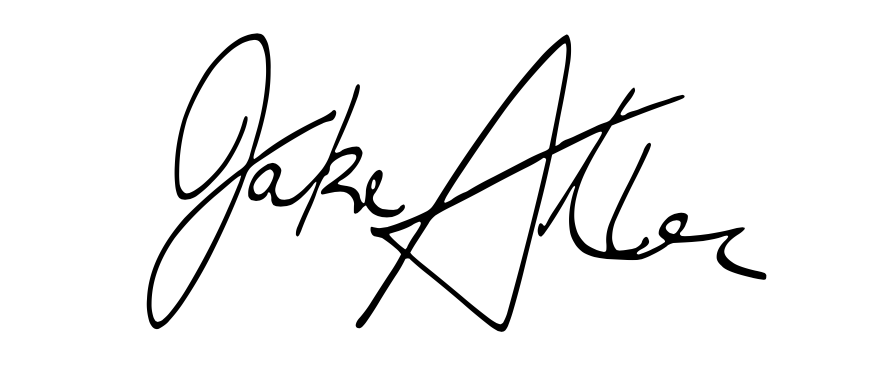 Jake Atler